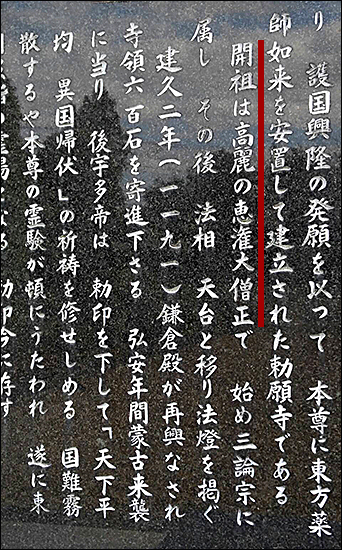 り　護国興隆の発願を以つて　本尊に東方薬
師如来を安置して建立された勅願寺である
開祖は高麗の恵潅大僧正で　始め三論宗に
属し　その後　法相　天台と移り法燈を掲ぐ
建久二年(一一九一)鎌倉殿が再興なされ
寺領六百石を寄進下さる　弘安年間蒙古来襲
に当り　後宇多帝は　勅印を下して「天下平
均　異国帰伏」の祈祷を修せしめる　国難霧
散するや本尊の霊験が頓にうたわれ　遂に東
の霊場となる　勅印今に存す